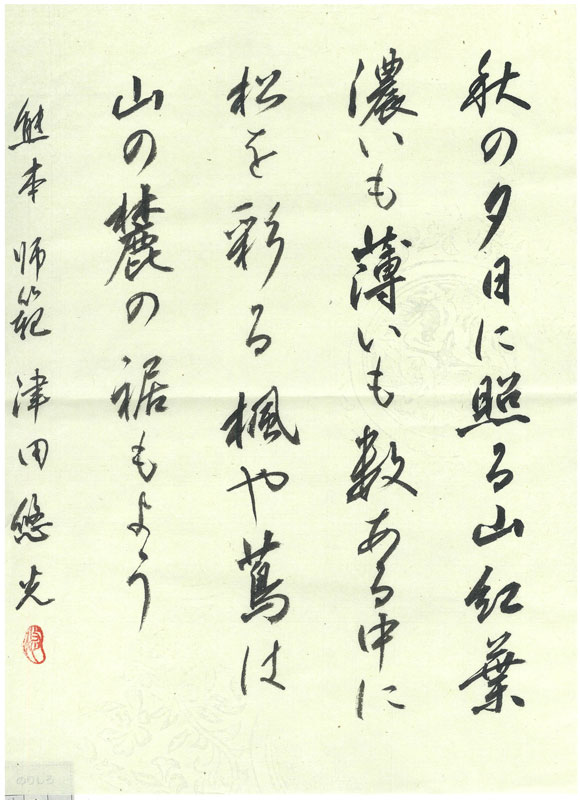 秋の夕日に照る山紅葉
濃いも薄いも数ある中に
松を彩る楓や蔦は
山の麓の裾もよう
熊本 師範 津田悠光
のりしろ